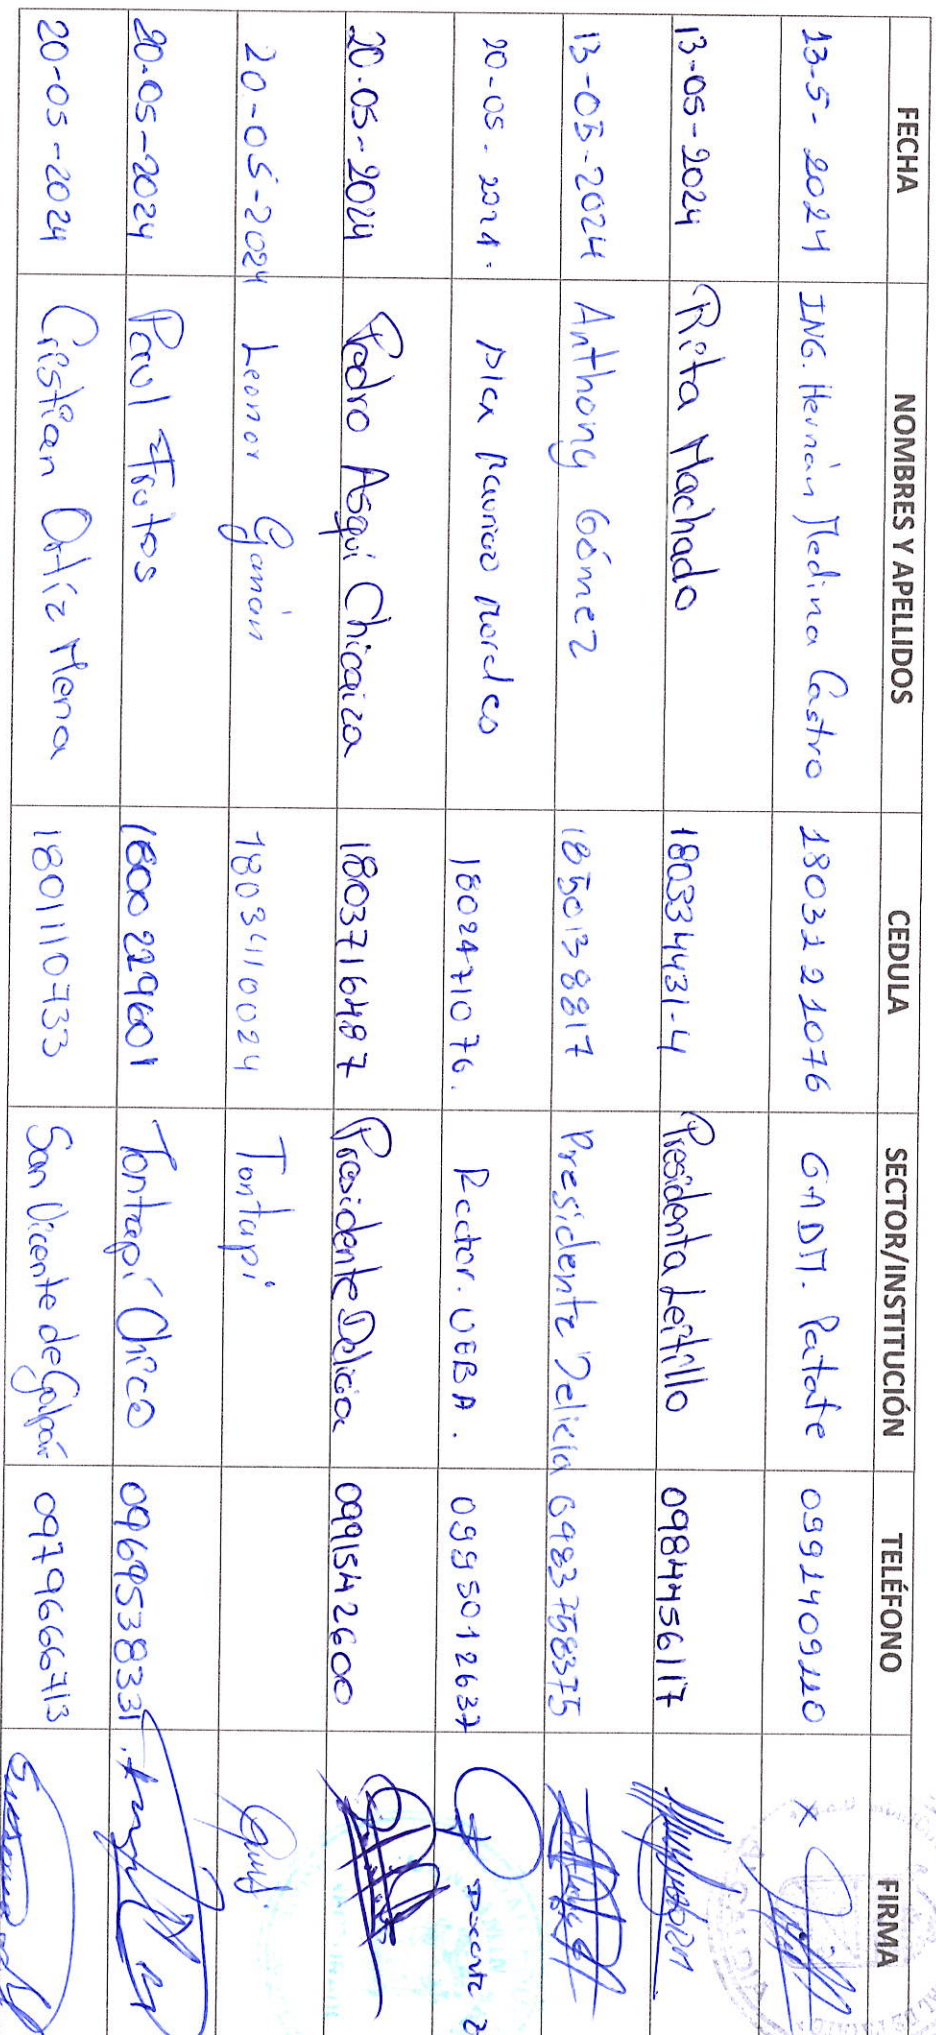 FECHA NOMBRES Y APELLIDOS CEDULA SECTOR/INSTITUCIÓN TELÉFONO FIRMA
13-5-2024 ING. Hernán Medina Castro 1803221076 GADM. Patate 0991409110 X
13-05-2024 Rita Machado 180334431-4 Presidenta Leitillo 0984456117
13-05-2024 Anthony Gómez 1850138817 Presidente Delicia 0983758375
20-05-2024. Mauricio Morales 1802471076. Rector. UEBA. 0995012637
20-05-2024 Pedro Asqui Chicaiza 1803716487 Presidente Delicia 0991542600
20-05-2024 Leonor Gamán 18034110024 Tontapi
20-05-2024 Paul Frutos 1600229601 Tontapí Chico 0969538331
20-05-2024 Cristian Ortíz Mena 1801110733 San Vicente de Galpón 0979666713